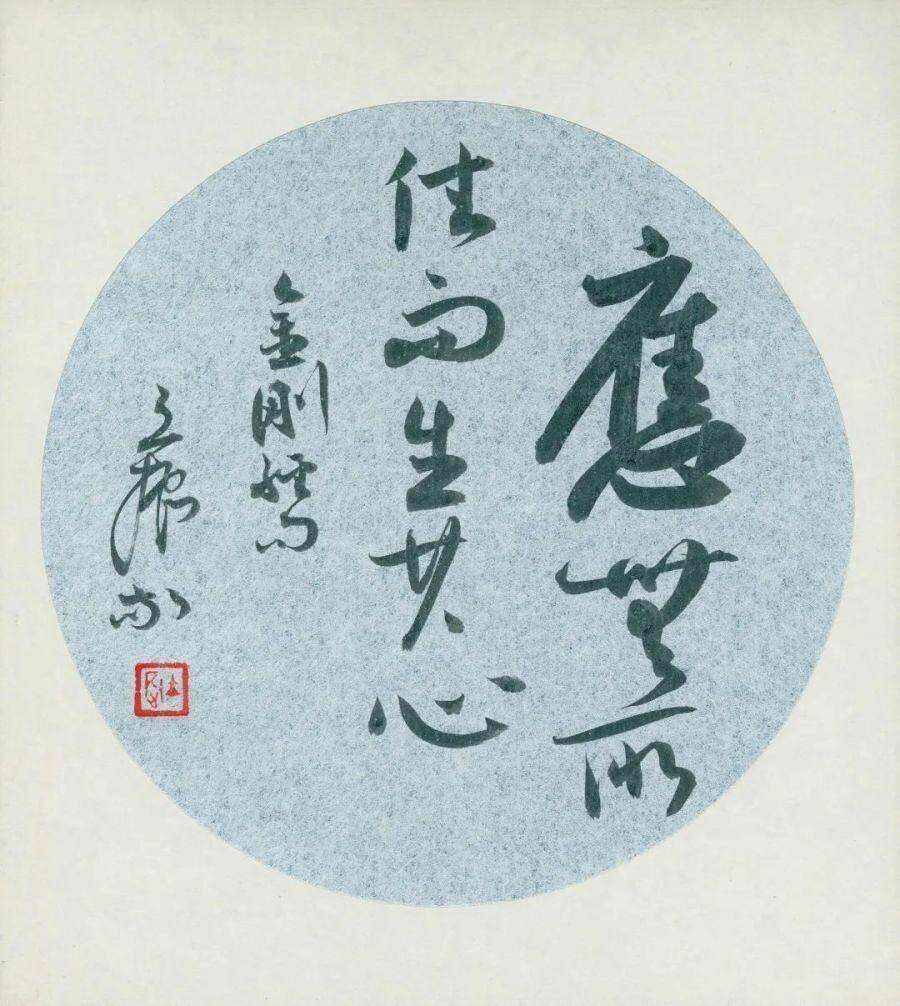 應無所
住而生其心
金剛經句